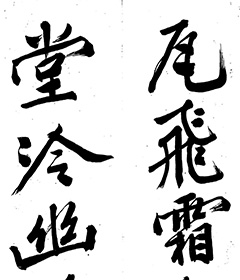 尾飛霜
堂冷幽